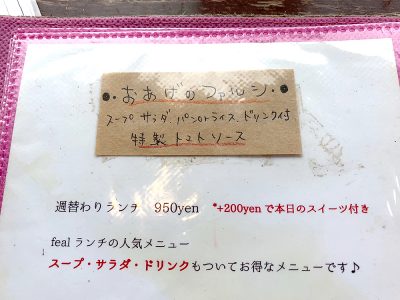 おあげのファルシ
スープ、サラダ、パンorライス、ドリンク付
特製トマトソース
週替わりランチ 950yen *+200yenで本日のスイーツ付き
fealランチの人気メニュー
スープ・サラダ・ドリンクもついてお得なメニューです♪